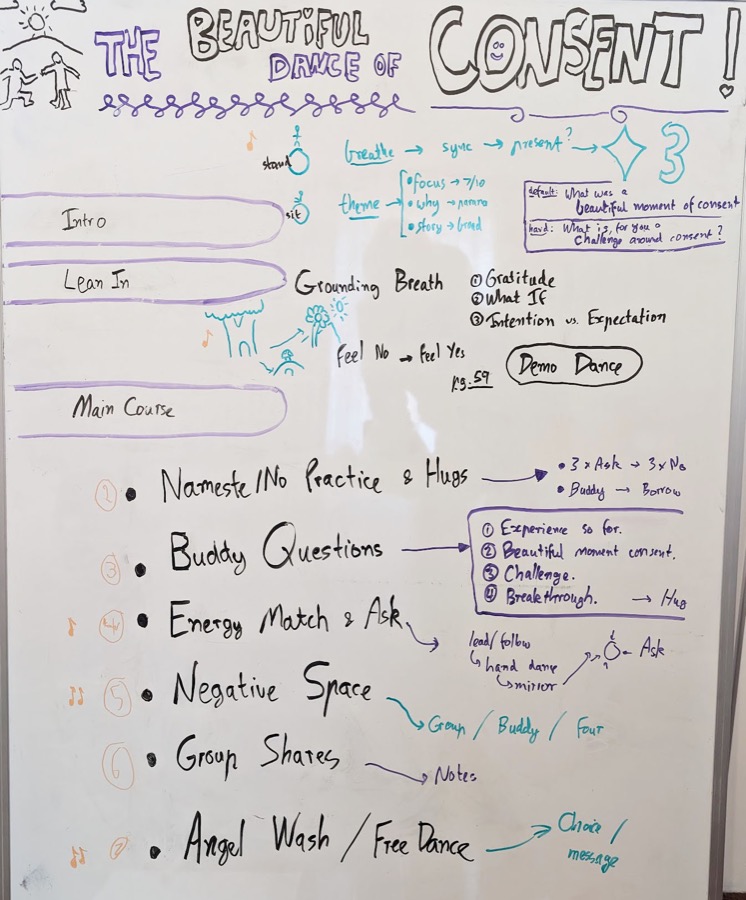 THE BEAUTIFUL DANCE OF CONSENT!
stand
breathe → sync → present? → 3
sit
theme →
• focus → 7/10
• why →
• story → broad
default: What was a
beautiful moment of consent
hard: What is, for you a
challenge around consent?
Intro
Lean In
Grounding Breath
① Gratitude
② What If
③ Intention vs. Expectation
Feel No → Feel Yes
pg. 59
Demo Dance
Main Course
② • Nameste/No Practice & Hugs
• 3 x Ask → 3 x No
• Buddy → Borrow
③ • Buddy Questions
① Experience so far.
② Beautiful moment consent.
③ Challenge.
④ Breakthrough. → Hug
④ • Energy Match & Ask
lead/follow
hand dance
mirror
Ask
⑤ • Negative Space
Group / Buddy / Four
⑥ • Group Shares
Notes
⑦ • Angel Wash / Free Dance
Choice /
message